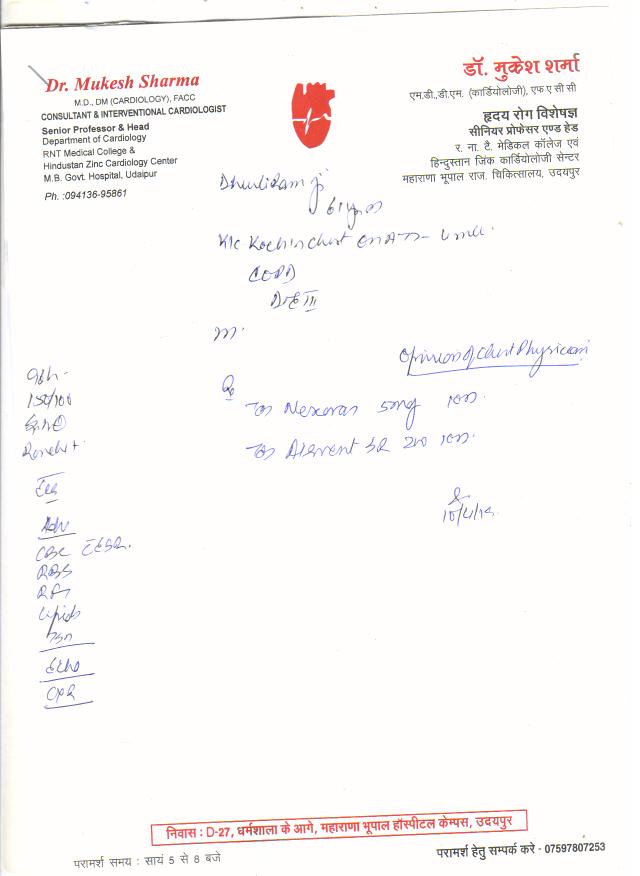 Dr. Mukesh Sharma
M.D., DM (CARDIOLOGY), FACC
CONSULTANT & INTERVENTIONAL CARDIOLOGIST
Senior Professor & Head
Department of Cardiology
RNT Medical College &
Hindustan Zinc Cardiology Center
M.B. Govt. Hospital, Udaipur
Ph. :094136-95861
डॉ. मुकेश शर्मा
एम.डी.,डी.एम. (कार्डियोलॉजी), एफ ए सी सी
हृदय रोग विशेषज्ञ
सीनियर प्रोफेसर एण्ड हेड
र. ना. टै. मेडिकल कॉलेज एवं
हिन्दुस्तान जिंक कार्डियोलॉजी सेन्टर
महाराणा भूपाल राज. चिकित्सालय, उदयपुर
K/c Koch's Chest on ATT
COPD
DOE III
Opinion of Chest Physician
150/100
Adv
CBC ESR.
RBS
RFT
Lipids
Echo
CXR
Rx
5mg
SR 200
निवास : D-27, धर्मशाला के आगे, महाराणा भूपाल हॉस्पीटल केम्पस, उदयपुर
परामर्श समय : सायं 5 से 8 बजे
परामर्श हेतु सम्पर्क करे - 07597807253